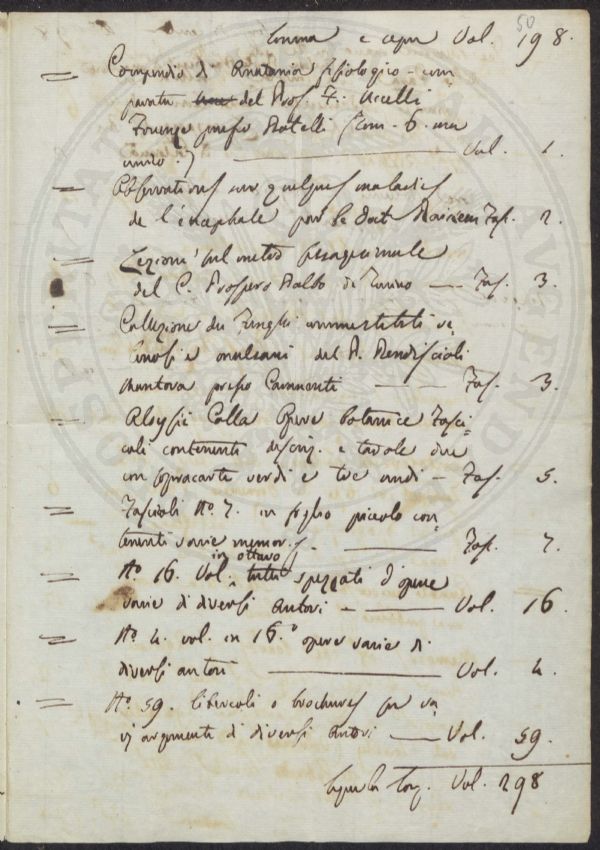 50
Somma e segue Vol. 198.
= Compendio di Anatomia fisiologico-com
parata del Prof. F. Uccelli
Firenze presso Batelli Tom. 6. in un
unico Vol. 1.
= Observations sur quelques maladies
de l'encephale par le Doct. Fasc. 2.
= Lezioni sul metro sessagesimale
del C. Prospero Balbo di Torino — Fas. 3.
= Collezione dei Funghi commestibili ve-
lenosi e malsani del P. Bendiscioli
Mantova presso Caranenti — Fas. 3.
= Aloysii Colla Opere botanice Fasci-
coli contenenti descriz. e tavole due
con sopracarte verdi e tre — Fas. 5.
= Fascioli N.º 7. in foglio piccolo con-
tenenti varie memor. — Fas. 7.
in ottavo
= N.º 16. Vol. tutti spezzati d'opere
varie di diversi autori — Vol. 16.
= N.º 4. vol. in 16.º opere varie di
diversi autori — Vol. 4.
= N.º 59. libercoli o brochures su va-
rj argomenti di diversi autori — Vol. 59.
Segue la Vol. 298